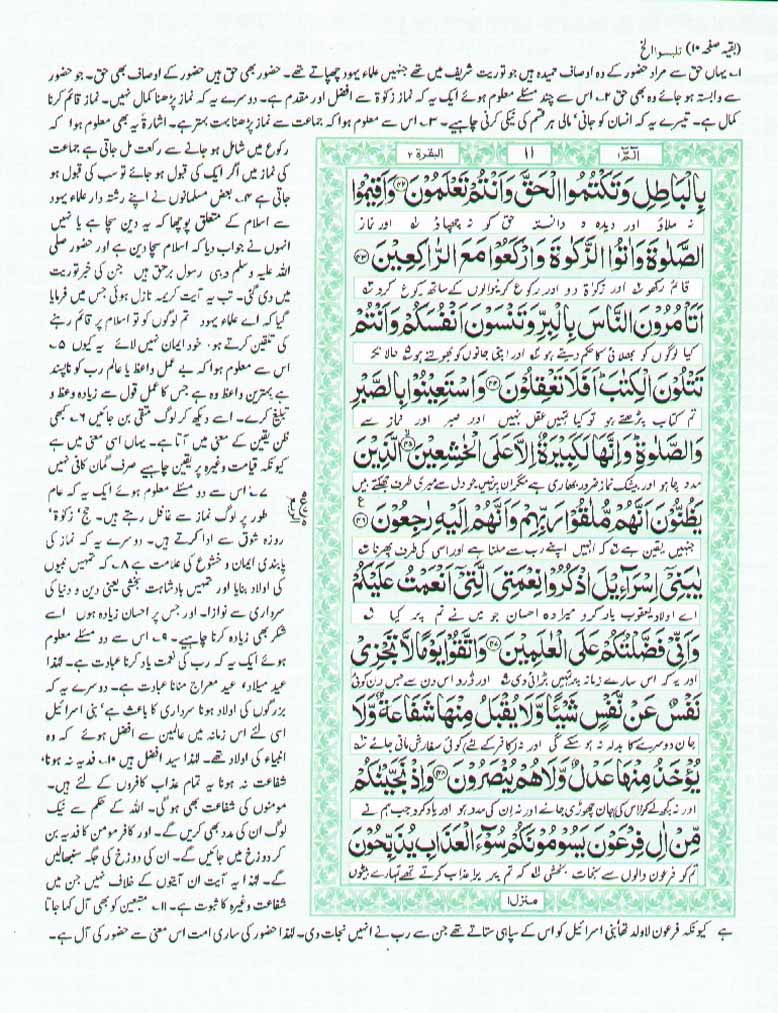 (بقیہ صفحہ ۱۰) تلبسوا الخ
۱۔ یہاں حق سے مراد حضور کے وہ اوصاف حمیدہ ہیں جو توریت شریف میں تھے جنہیں علماء یہود چھپاتے تھے۔ حضور بھی حق ہیں حضور کے اوصاف بھی حق۔ جو حضور
سے وابستہ ہو جائے وہ بھی حق ۲۔ اس سے چند مسئلے معلوم ہوئے ایک یہ کہ نماز زکوٰۃ سے افضل اور مقدم ہے۔ دوسرے یہ کہ نماز پڑھنا کمال نہیں۔ نماز قائم کرنا
کمال ہے۔ تیسرے یہ کہ انسان کو جانی' مالی ہر قسم کی نیکی کرنی چاہیے۔ ۳۔ اس سے معلوم ہوا کہ جماعت سے نماز پڑھنا بہت بہتر ہے۔ اشارۃ یہ بھی معلوم ہوا کہ
رکوع میں شامل ہو جانے سے رکعت مل جاتی ہے جماعت
کی نماز میں اگر ایک کی قبول ہو جائے تو سب کی قبول ہو
جاتی ہے ۴۔ بعض مسلمانوں نے اپنے رشتہ دار علماء یہود
سے اسلام کے متعلق پوچھا کہ یہ دین سچا ہے یا نہیں
انہوں نے جواب دیا کہ اسلام سچا دین ہے اور حضور صلی
اللہ علیہ وسلم وہی رسول برحق ہیں جن کی خبر توریت
میں دی گئی۔ تب یہ آیت کریمہ نازل ہوئی جس میں فرمایا
گیا کہ اے علماء یہود تم لوگوں کو تو اسلام پر قائم رہنے
کی تلقین کرتے ہو۔ خود ایمان نہیں لائے یہ کیوں ۵۔
اس سے معلوم ہوا کہ بے عمل واعظ یا عالم رب کو ناپسند
ہے بہترین واعظ وہ ہے جس کا عمل قول سے زیادہ وعظ و
تبلیغ کرے۔ اسے دیکھ کر لوگ متقی بن جائیں ۶۔ کبھی
ظن یقین کے معنی میں آتا ہے۔ یہاں اسی معنی میں ہے
کیونکہ قیامت وغیرہ پر یقین چاہیے صرف گمان کافی نہیں
۷۔ اس سے دو مسئلے معلوم ہوئے ایک یہ کہ عام
طور پر لوگ نماز سے غافل رہتے ہیں۔ حج' زکوٰۃ'
روزہ شوق سے ادا کرتے ہیں۔ دوسرے یہ کہ نماز کی
پابندی ایمان و خشوع کی علامت ہے ۸۔ کہ تمہیں نبیوں
کی اولاد بنایا اور تمہیں بادشاہت بخشی یعنی دین و دنیا کی
سرداری سے نوازا۔ اور جس پر احسان زیادہ ہوں اسے
شکر بھی زیادہ کرنا چاہیے۔ ۹۔ اس سے دو مسئلے معلوم
ہوئے ایک یہ کہ رب کی نعمت یاد کرنا عبادت ہے۔ لہٰذا
عید میلاد' عید معراج منانا عبادت ہے۔ دوسرے یہ کہ
بزرگوں کی اولاد ہونا سرداری کا باعث ہے' بنی اسرائیل
اسی لئے اس زمانہ میں عالمین سے افضل ہوئے کہ وہ
انبیاء کی اولاد تھے۔ لہٰذا سید افضل ہیں ۱۰۔ فدیہ نہ ہونا'
شفاعت نہ ہونا یہ تمام عذاب کافروں کے لئے ہیں۔
مومنوں کی شفاعت بھی ہوگی۔ اللہ کے حکم سے نیک
لوگ ان کی مدد بھی کریں گے۔ اور کافر مومن کا فدیہ بن
کر دوزخ میں جائیں گے۔ ان کی دوزخ کی جگہ سنبھالیں
گے۔ لہٰذا یہ آیت ان آیتوں کے خلاف نہیں جن میں
شفاعت وغیرہ کا ثبوت ہے۔ ۱۱۔ متبعین کو بھی آل کہا جاتا
الٓمّٓ ۱ ۱۱ البقرۃ ۲
بِالْبَاطِلِ وَتَكْتُمُوا الْحَقَّ وَاَنْتُمْ تَعْلَمُوْنَ ﴿۴۲﴾ وَاَقِيْمُوا
نہ ملاؤ اور دیدہ و دانستہ حق کو نہ چھپاؤ اور نماز
الصَّلٰوةَ وَاٰتُوا الزَّكٰوةَ وَارْكَعُوْا مَعَ الرّٰكِعِيْنَ ﴿۴۳﴾
قائم رکھو اور زکوٰۃ دو اور رکوع کرنیوالوں کے ساتھ رکوع کرو
اَتَاْمُرُوْنَ النَّاسَ بِالْبِرِّ وَتَنْسَوْنَ اَنْفُسَكُمْ وَاَنْتُمْ
کیا لوگوں کو بھلائی کا حکم دیتے ہو اور اپنی جانوں کو بھولتے ہو حالانکہ
تَتْلُوْنَ الْكِتٰبَ ؕ اَفَلَا تَعْقِلُوْنَ ﴿۴۴﴾ وَاسْتَعِيْنُوْا بِالصَّبْرِ
تم کتاب پڑھتے ہو تو کیا تمہیں عقل نہیں اور صبر اور نماز سے
وَالصَّلٰوةِ ؕ وَاِنَّهَا لَكَبِيْرَةٌ اِلَّا عَلَى الْخٰشِعِيْنَ ﴿۴۵﴾ الَّذِيْنَ
مدد چاہو اور بیشک نماز ضرور بھاری ہے مگر ان پر نہیں جو دل سے میری طرف جھکتے ہیں
يَظُنُّوْنَ اَنَّهُمْ مُّلٰقُوْا رَبِّهِمْ وَاَنَّهُمْ اِلَيْهِ رٰجِعُوْنَ ﴿۴۶﴾ ع
جنہیں یقین ہے کہ انہیں اپنے رب سے ملنا ہے اور اسی کی طرف پھرنا
يٰبَنِىْٓ اِسْرَآءِيْلَ اذْكُرُوْا نِعْمَتِىَ الَّتِىْٓ اَنْعَمْتُ عَلَيْكُمْ
اے اولاد یعقوب یاد کرو میرا وہ احسان جو میں نے تم پر کیا
وَاَنِّىْ فَضَّلْتُكُمْ عَلَى الْعٰلَمِيْنَ ﴿۴۷﴾ وَاتَّقُوْا يَوْمًا لَّا تَجْزِىْ
اور یہ کہ اس سارے زمانہ پر تمہیں بڑائی دی اور ڈرو اس دن سے جس دن کوئی
نَفْسٌ عَنْ نَّفْسٍ شَيْئًا وَّلَا يُقْبَلُ مِنْهَا شَفَاعَةٌ وَّلَا
جان دوسرے کا بدلہ نہ ہو سکے گی اور نہ کافر کے لئے کوئی سفارش مانی جائے
يُؤْخَذُ مِنْهَا عَدْلٌ وَّلَا هُمْ يُنْصَرُوْنَ ﴿۴۸﴾ وَاِذْ نَجَّيْنٰكُمْ
اور نہ کچھ لے کر اس کی جان چھوڑی جائے اور نہ ان کی مدد ہو اور یاد کرو جب ہم نے
مِّنْ اٰلِ فِرْعَوْنَ يَسُوْمُوْنَكُمْ سُوْٓءَ الْعَذَابِ يُذَبِّحُوْنَ
تم کو فرعون والوں سے نجات بخشی کہ تم پر برا عذاب کرتے تھے تمہارے بیٹوں
منزل ۱
ہے کیونکہ فرعون لاولد تھا بنی اسرائیل کو اس کے سپاہی ستاتے تھے جن سے رب نے انہیں نجات دی۔ لہٰذا حضور کی ساری امت اس معنی سے حضور کی آل ہے۔